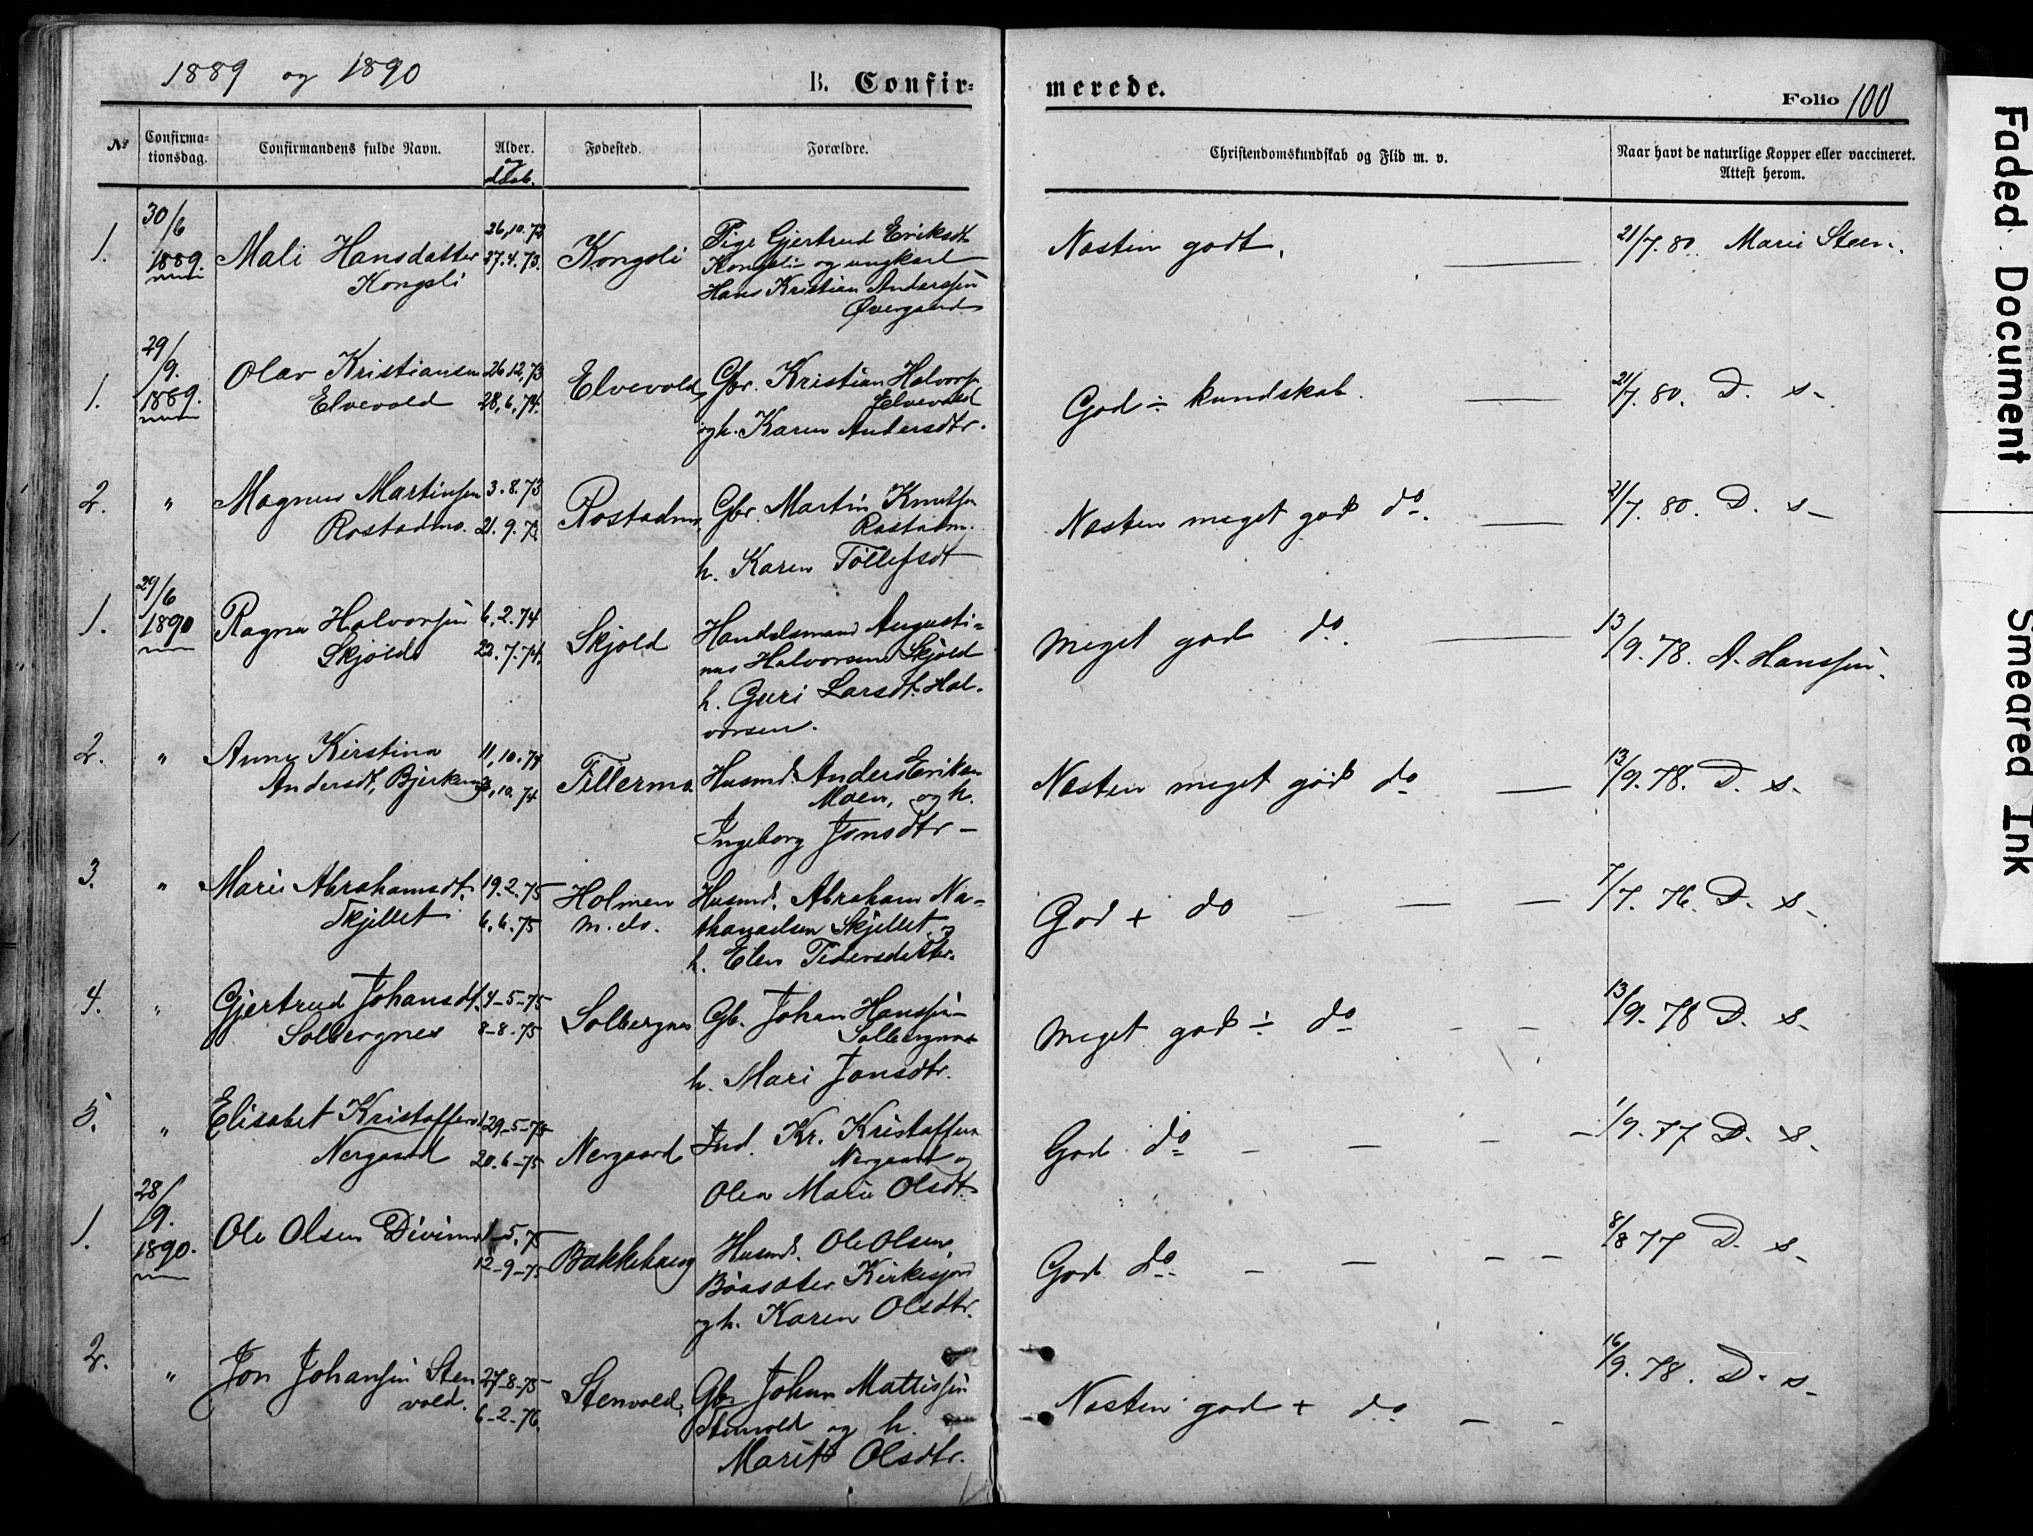 1889 og 1890
B. Confirmerede.
Folio 100
No
Confirmationsdag.
Confirmandens fulde Navn.
Alder.
og
daab.
Fødested.
Forældre.
Christendomskundskab og Flid m. v.
Naar havt de naturlige Kopper eller vaccineret.
Attest herom.
1.
30/6
1889.
Mali Hansdatter
Kongsli
26,10.72
27.4.73.
Kongsli
Pige Gjertrud Eriksdt
Kongsli og ungkarl
Hans Kristian Anderssen
Øvergaard
Næsten godt.
21/7.80. Marie Steen.
1.
29/9.
1889.
Olav Kristiansen
Elvevold
26.12.73
28.6.74.
Elvevold
Gbr. Kristian Halvors.
Elvevold
og h. Karen Andersdtr.
God ÷ kundskab.
21/7.80. D. s.
2.
"
Magnus Martinsen
Rostadmo.
3.8.73
21.9.73
Rostadmo
Gbr. Martin Knutsen
Rostadm.
h. Karen Tollefsdt
Næsten meget god do.
21/7.80. D. s.
1.
29/6
1890
Ragna Halvorsen
Skjold
6.2.74
22.7.74.
Skjold
Handelsmand Augusti=
nus Halvorsen Skjold
h. Guri Larsdt. Hal-
vorsen.
Meget god do.
13/9.78. A. Hanssen.
2.
"
Anne Kirstina
Andersdt, Bjerkeng
11,10.74
,10.74
Fillermo.
Husmd. Anders Eriksen
Moen, og h.
Ingeborg Jonsdtr
Næsten meget god do
13/9.78. D. s.
3.
"
Marie Abrahamsdt.
Skjellet
19.2.75
6.6.75
Holmen
m. do.
Husmd. Abraham Na=
thanaelsen Skjellet og
h. Elen Pedersdatter.
God + do
7/7.76. D. s.
4.
"
Gjertrud Johansdt.
Solbergnes
4-5-75
8-8-75
Solbergnes
Gb. Johan Hanssen
Solbergnes
h. Mari Jonsdtr.
Meget god ÷ do
13/9.78 D. s.
5.
"
Elisabet Kristoffersd
Nergaard
29-5-75
20.6-75
Nergaard
Ind. Kr. Kristoffersen
Nergaard og
Olea Marie Olsdt.
God do
1/9.77 D. s.
1.
28/9.
1890.
Ole Olsen Divimo
1-5.75
12-9-75
Bakkehaug
Husmd. Ole Olsen,
Bøasæter Kirkesjord
og h. Karen Olsdtr.
God do.
8/8 77 D. s.
2.
"
Jon Johansen Sten
vold.
27-8-75
6-2-76.
Stenvold.
Gbr Johan Mattissen
Stenvold og h.
Marit Olsdtr.
Næsten god + do
16/9.78. D. s.
Faded Document
Smeared Ink